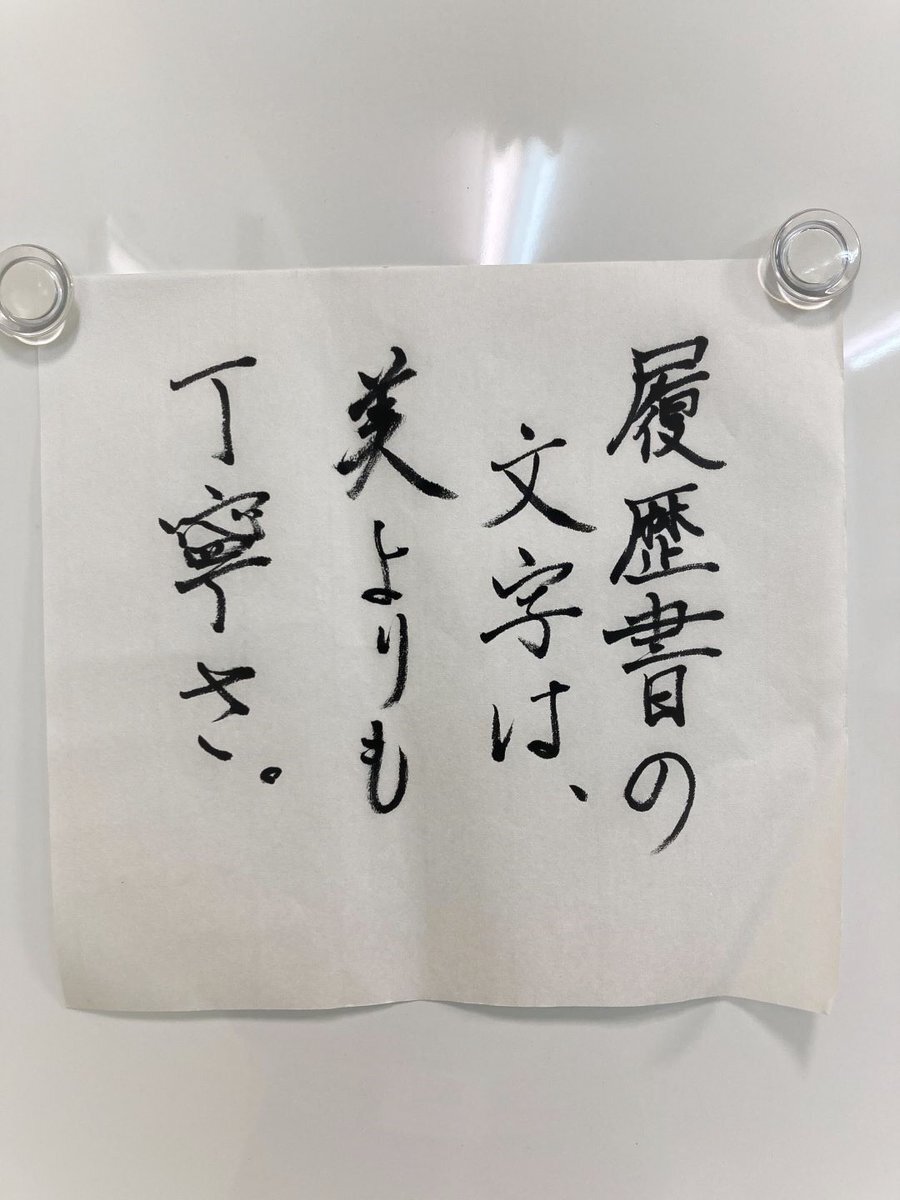 履歴書の
文字は、
美よりも
丁寧さ。